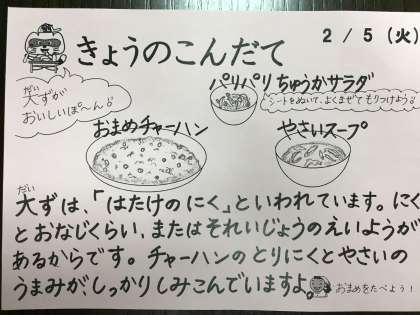 きょうのこんだて
2/5(火)
大(だい)ずが
おいしいぽ〜ん♪
パリパリちゅうかサラダ
シートをぬいて、よくまぜてもりつけよう!!
おまめチャーハン
やさいスープ
大(だい)ずは、「はたけのにく」といわれています。にく
とおなじくらい、またはそれいじょうのえいようが
あるからです。チャーハンのとりにくとやさいの
うまみが、しっかりしみこんでいますよ。
おまめをたべよう!